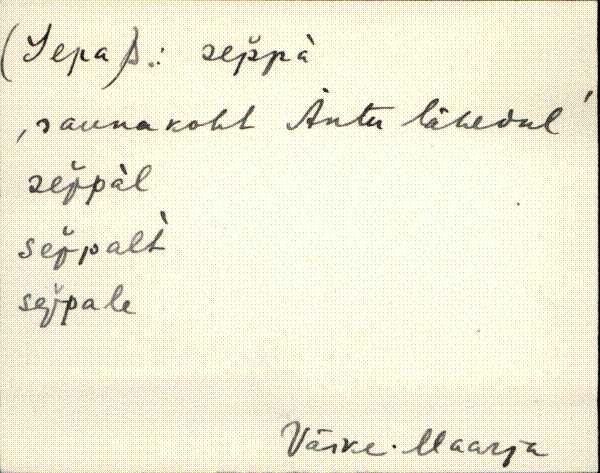 (Sepa): sep̆pà
‚saunakoht Àntu lähedal’
sep̆pàl
sep̆palt̀
sep̆pale
Väike-Maarja